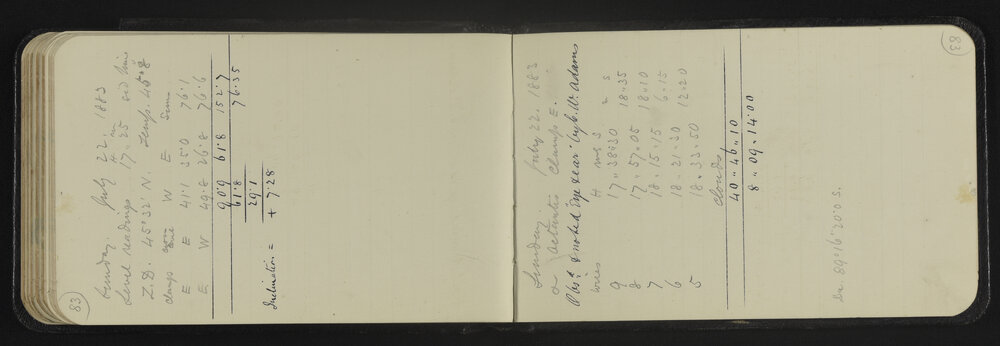 83
Sunday. July 22. 1883
Level readings 17 H 25 m sid time
Z.D. 45° 32' N. temp. 45°.8
Clamps W E Sums
E E 41.1 35.0 76.1
E W 49.8 26.8 76.6
90.9 61.8 152.7
61.8 76.35
29.1
+ 7.28
Inclination =
83
Sunday. July 22. 1883
α Clamp E.
Obsd & noted "Eye & ear" by C. W. Adams
Wires H m s m s
9 17 .. 38 .. 30 18 .. 35
8 17 .. 57 .. 05 18 .. 10
7 18 .. 15 .. 15 6 .. 15
6 18 .. 21 .. 30 12 .. 20
5 18 .. 33 .. 50
Clouds
40 .. 46 .. 10
8 .. 09 .. 14.00
Dec. 89° 16' 20".0 S.